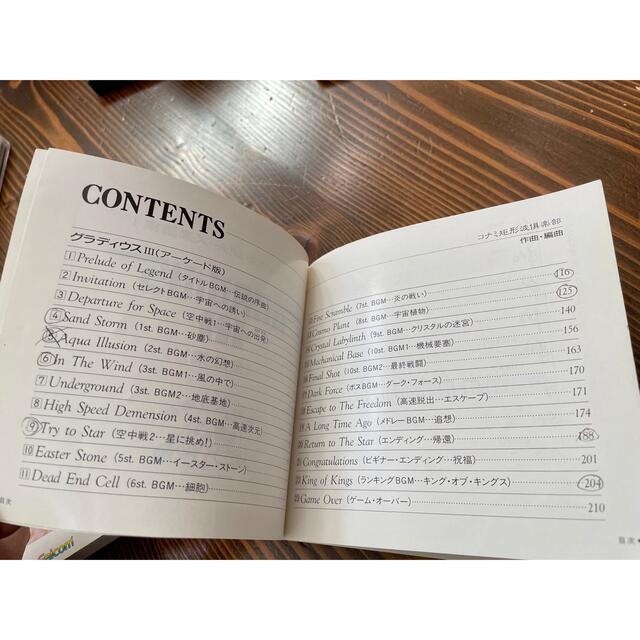 CONTENTS
グラディウスIII(アーケード版)
1 Prelude of Legend (タイトルBGM…伝説の序曲)
2 Invitation (セレクトBGM…宇宙への誘い)
3 Departure for Space (空中戦1…宇宙への出発)
4 Sand Storn (1st. BGM…砂塵)
5 Aqua Illusion (2st. BGM…水の幻想)
6 In The Wind (3st. BGM1…風の中で)
7 Underground (3st. BGM2…地底基地)
8 High Speed Demension (4st. BGM…高速次元)
9 Try to Star (空中戦2…星に挑め!)
10 Easter Stone (5st. BGM…イースター・ストーン)
11 Dead End Cell (6st. BGM…細胞)
目次
コナミ矩形波倶楽部
作曲・編曲
12 Fire Scramble (7st. BGM…炎の戦い) 116
13 Cosmo Plant (8st. BGM…宇宙植物) 125
14 Crystal Labylinth (9st. BGM…クリスタルの迷宮) 140
15 Mechanical Base (10st. BGM1…機械要塞) 156
16 Final Shot (10st. BGM2…最終戦闘) 163
17 Dark Force (ボスBGM…ダーク・フォース) 170
18 Escape to The Freedom (高速脱出…エスケープ) 171
19 A Long Time Ago (メドレーBGM…追想) 174
20 Return to The Star (エンディング…帰還) 188
21 Congratulations (ビギナー・エンディング…祝福) 201
22 King of Kings (ランキングBGM…キング・オブ・キングス) 204
23 Game Over (ゲーム・オーバー) 210
目次
Falcom